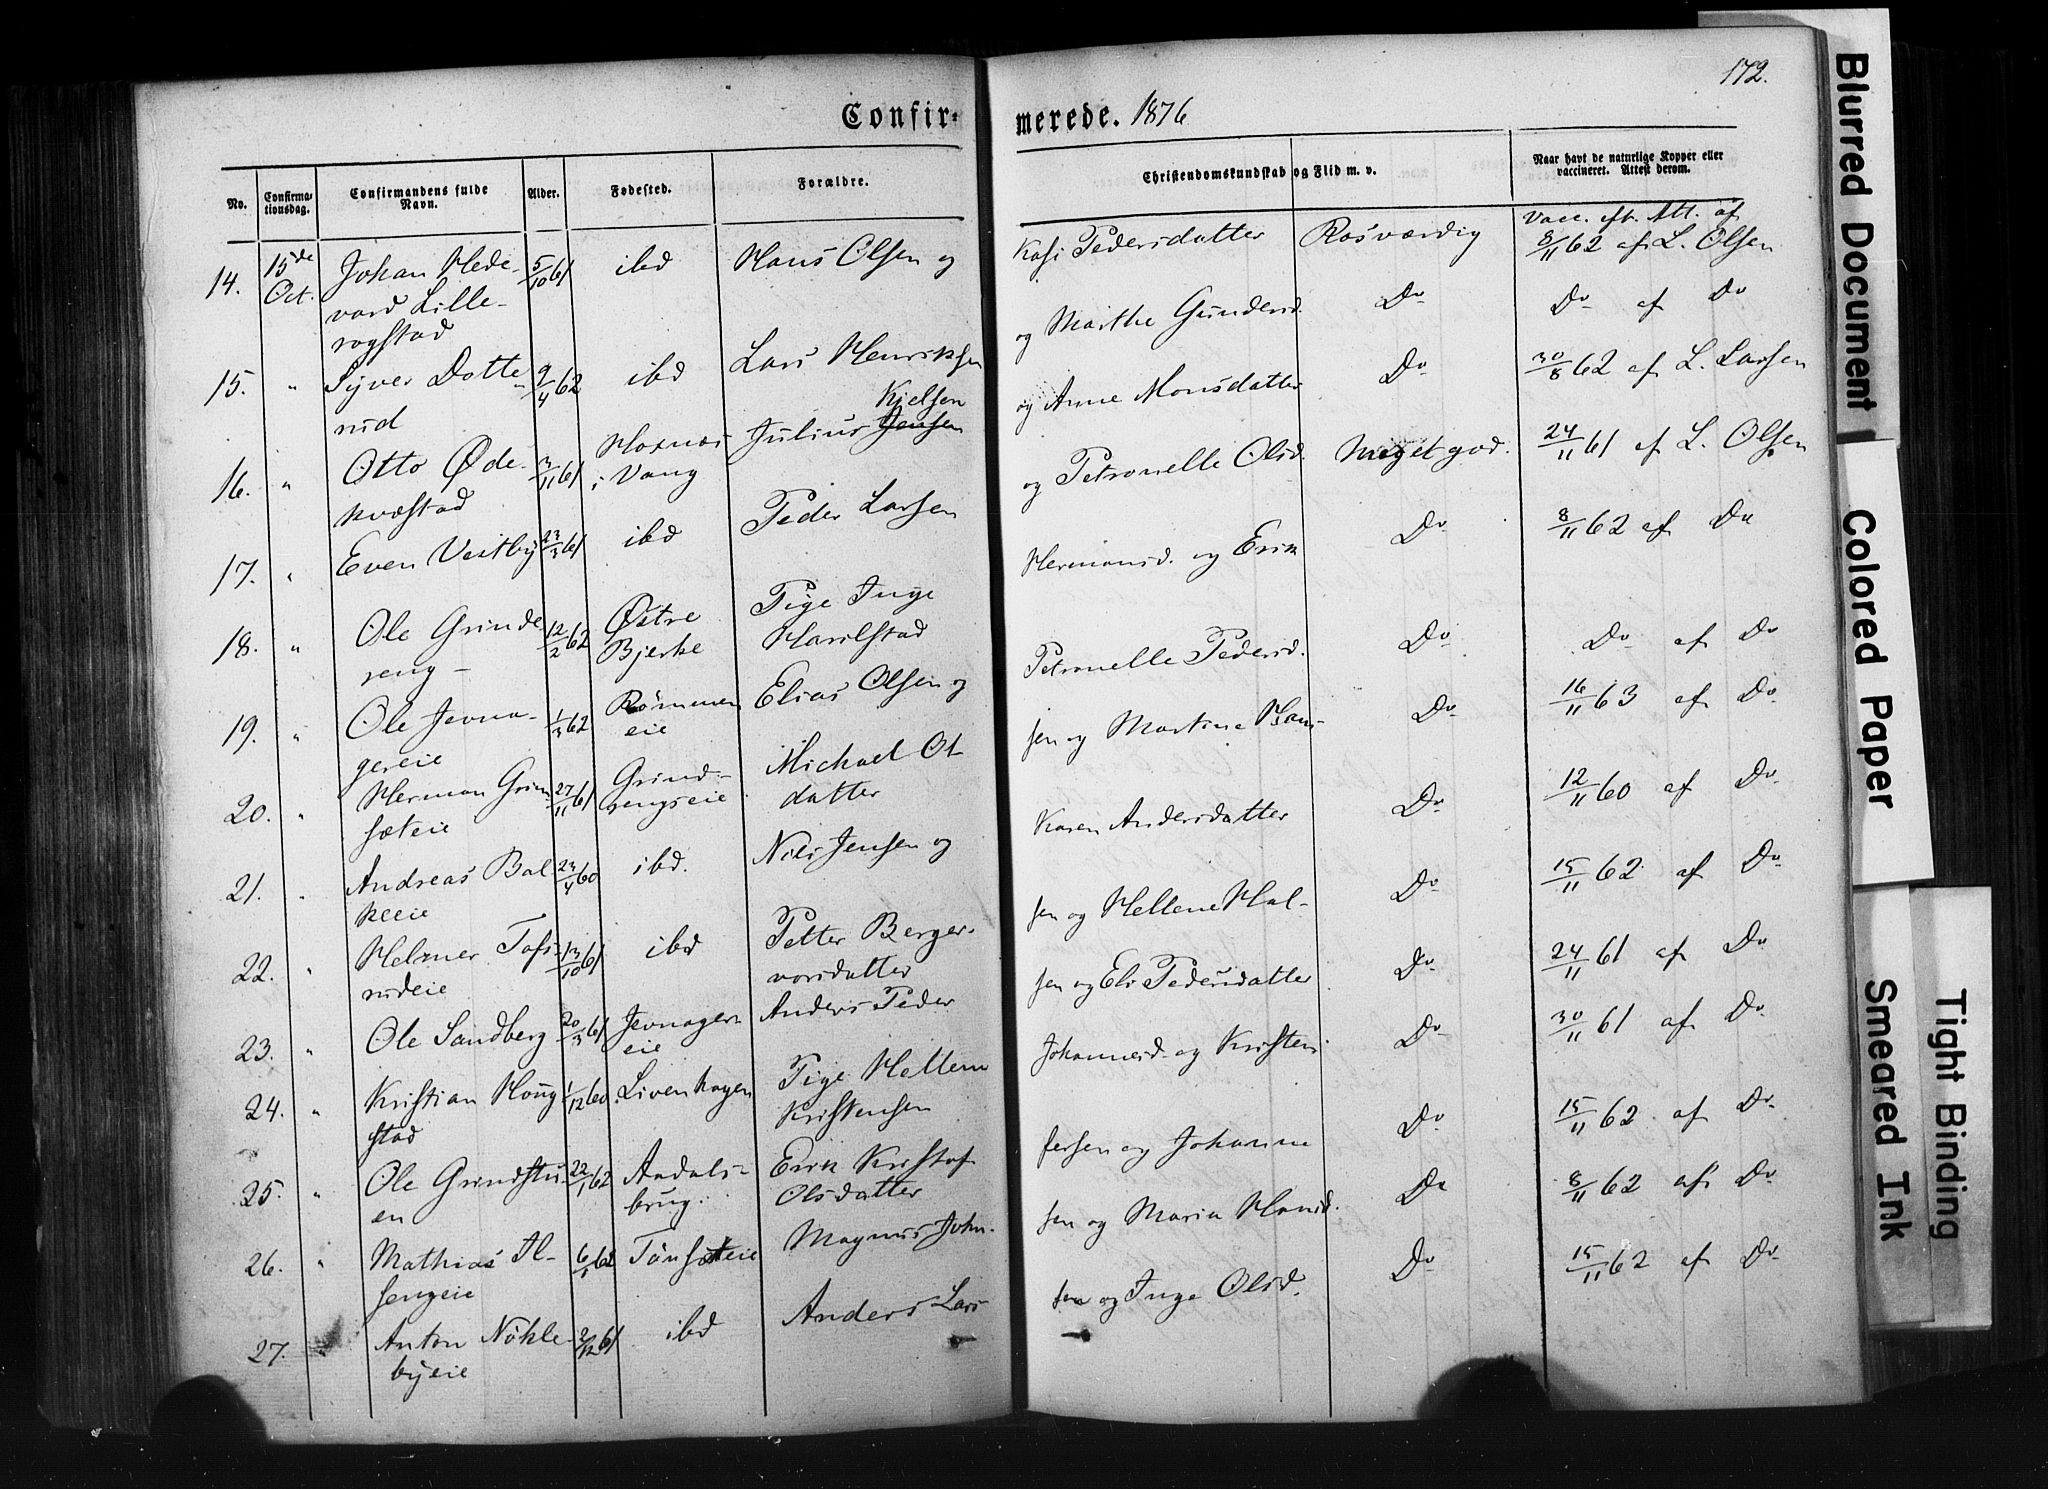 172.
Confir-
merede. 1876
No.
Confirma-
tionsdag.
Confirmandens fulde
Navn.
Alder.
Fødested.
Forældre.
Christendomskundskab og Flid m. v.
Naar havt de naturlige Kopper eller
vaccineret. Attest derom.
14. 15de Oct. Johan Hede- 5/10 61 ibd Hans Olsen og
vard Lille-
rogstad
Kasi Pedersdatter Rosværdig Vacc. eft. Att. af
8/11 62 af L. Olsen
15. " Syver Dotte- 9/4 62 ibd Lars Henriksen
rud
og Marthe Gundersd. Do Do af Do
16. " Otto Øde- 3/11 61 Hoxnæs Julius Jensen Kielsen
kvæstad i Vang
og Anne Monsdatter Do 30/8 62 af L. Larsen
17. " Even Vestby 23/3 61 ibd Peder Larsen
og Petronelle Olsd. Meget god. 24/11 61 af L. Olsen
18. " Ole Grinde 12/2 62 Østre Pige Inge
reng - Bjerke Marilstad
Hermansd. og Erik Do 8/11 62 af Do
19. " Ole Jevna- 1/3 62 Rømmen Elias Olsen og
gereie eie
Petronelle Pedersd. Do Do af Do
20. " Herman Grim- 27/11 61 Grind- Michael Ol-
sæteie rengseie datter
sen og Martine Hans- Do 16/11 63 af Do
21. " Andreas Bal 23/4 60 ibd. Nils Jensen og
keeie
Karen Andersdatter Do 12/11 60 af Do
22. " Helmer Tofs- 13/10 61 ibd Petter Berger-
rudeie vorsdatter
sen og Hellene Hal- Do 15/11 62 af Do
23. " Ole Sandberg 20/3 61 Jevnager Anders Peder
eie
sen og Eli Pedersdatter Do 24/11 61 af Do
24. " Kristian Houg 1/12 60 Livenhagen Pige Hellene
stad Kristensen
Johannesd. og Kristen Do 30/11 61 af Do
25. " Ole Grindstu- 22/1 62 Aadals- Erik Kristof-
en brug. Olsdatter
fersen og Johanne Do 15/11 62 af Do
26. " Mathias Al- 6/1 62 Tønsæteie Magnus John-
sengeie
sen og Maria Hansd. Do 8/11 62 af Do
27. " Anton Nøkle- 2/12 61 ibd Anders Lars-
byeie
sen og Inge Olsd. Do 15/11 62 af Do
Blurred Document
Colored Paper
Smeared Ink
Tight Binding